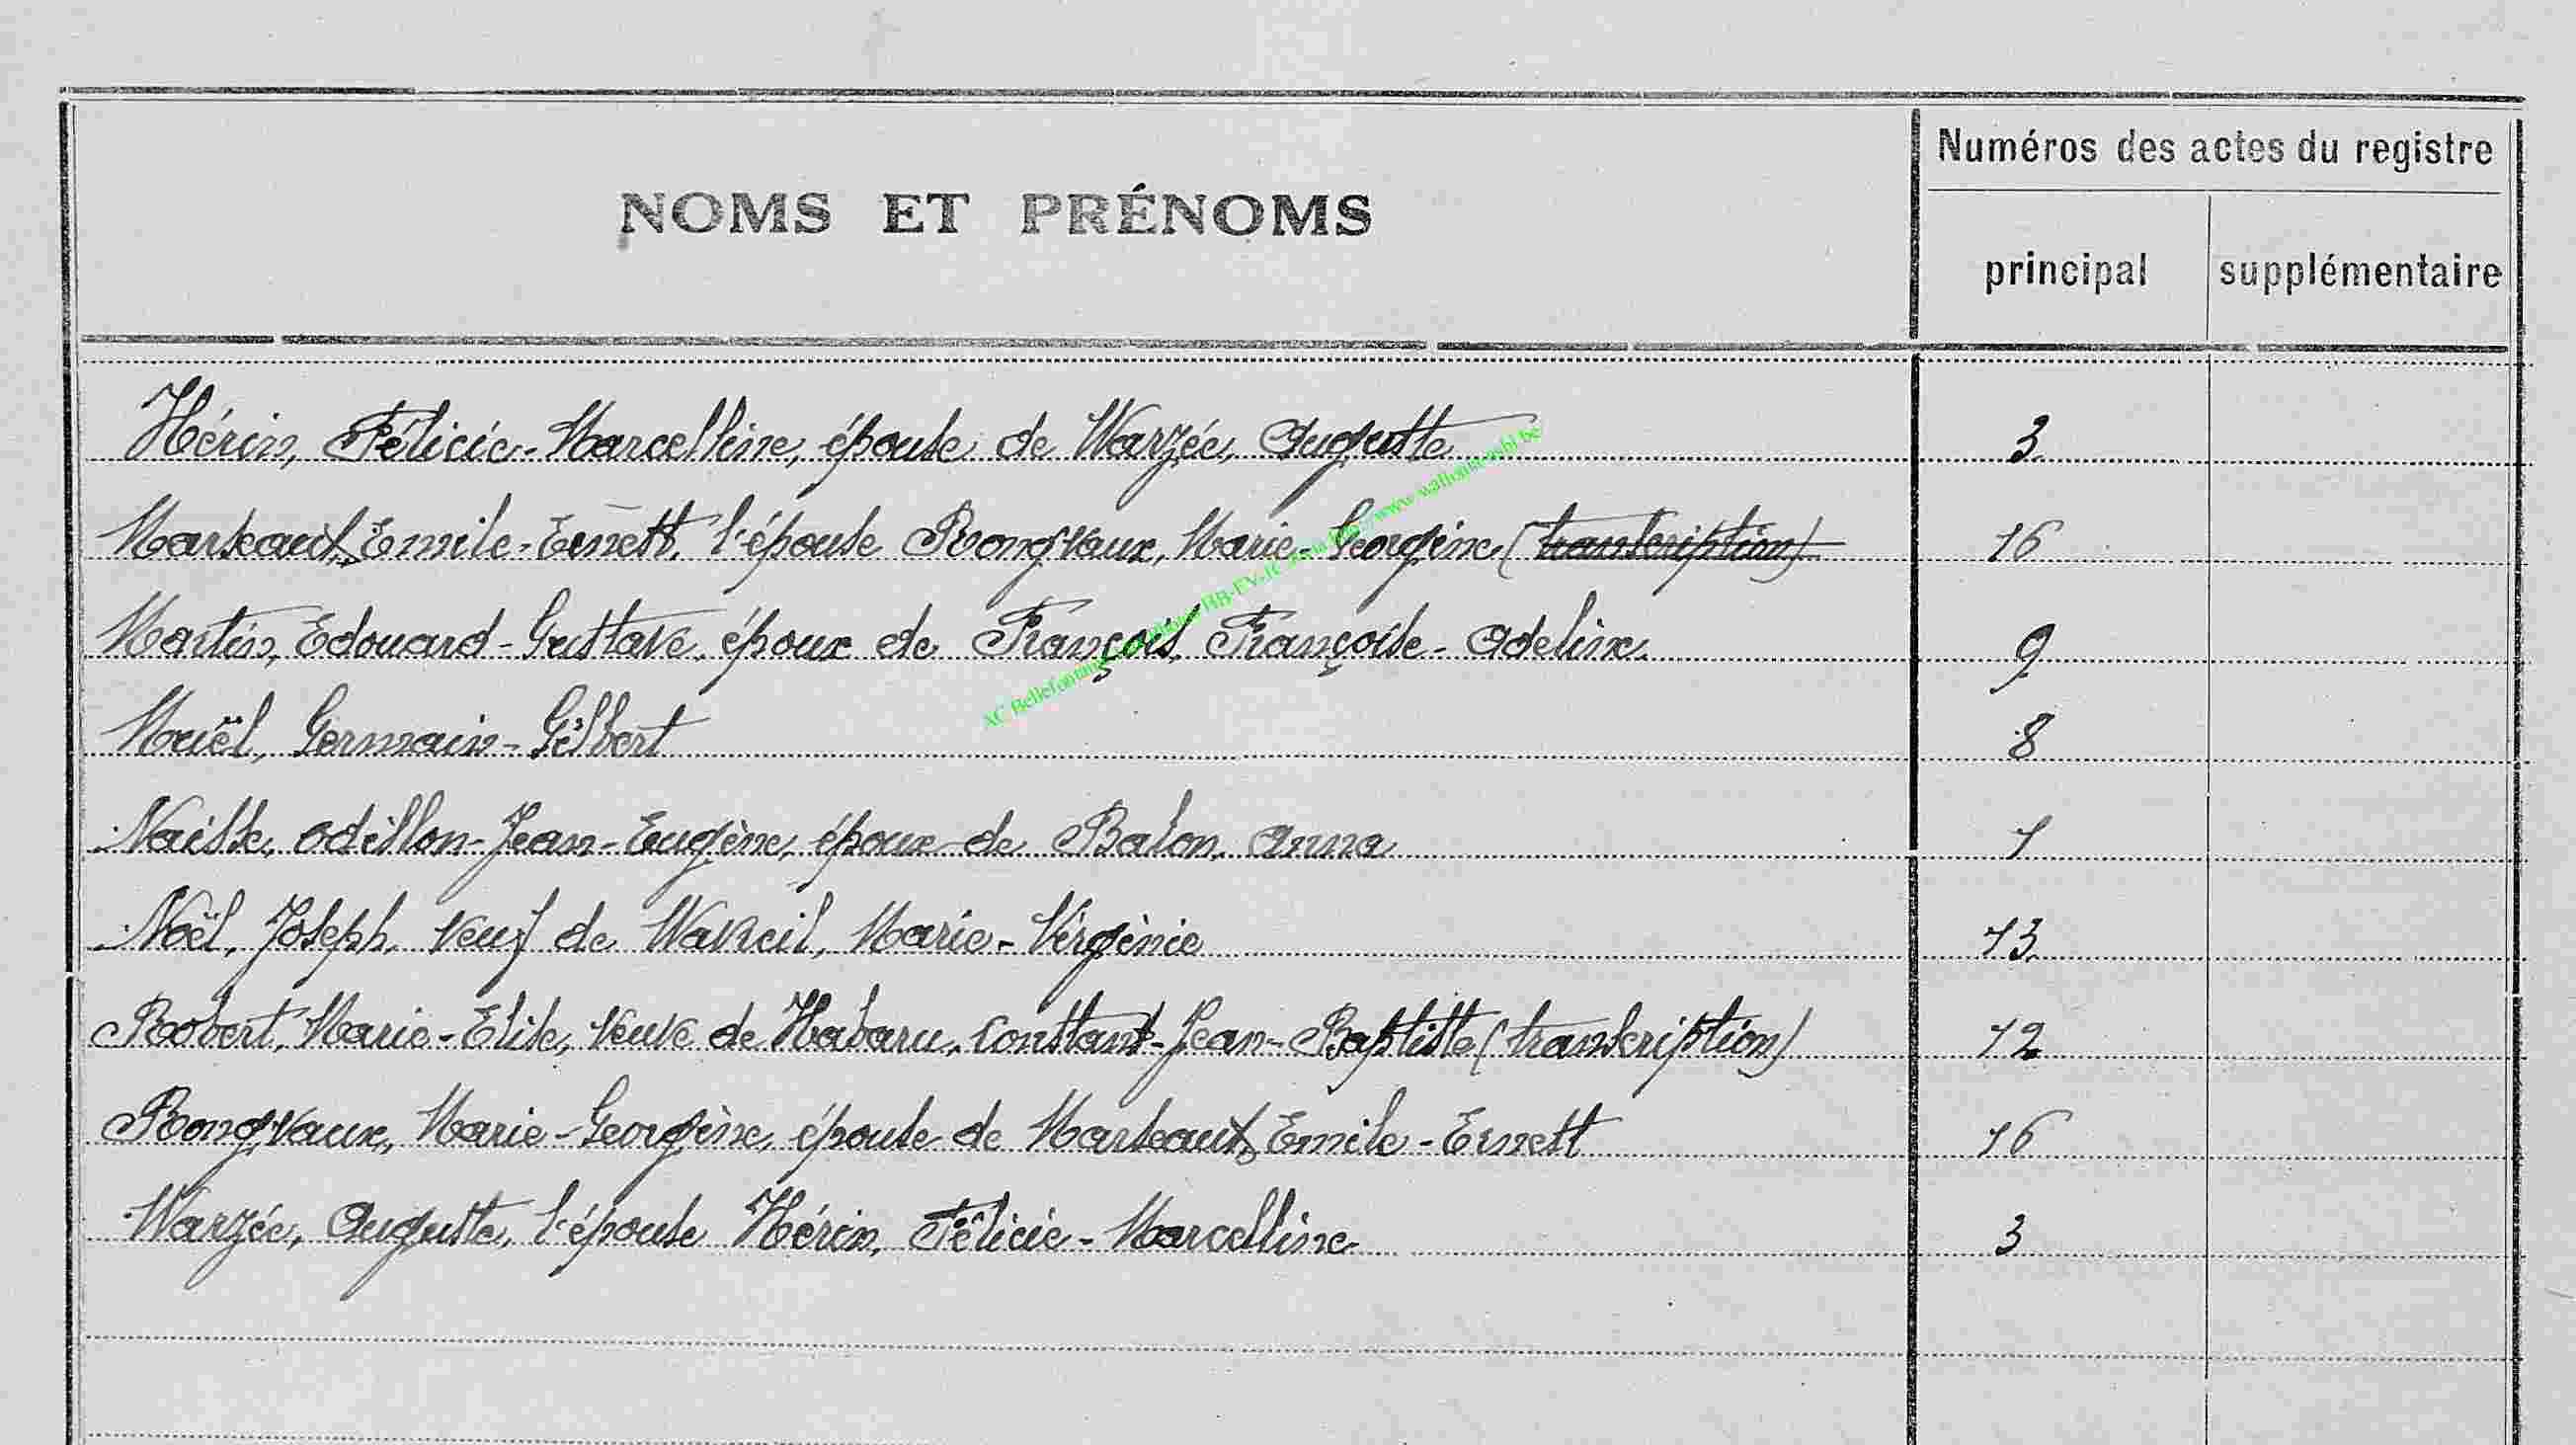 Numéros des actes du registre
NOMS ET PRÉNOMS
principal supplémentaire
Hérin, Félicie-Marcelline, épouse de Warzée, Auguste 3
Marseaut, Emile-Ernest, l'épouse Rongvaux, Marie-Georgine (transcription) 16
Martin, Edouard-Gustave, époux de François, Françoise-Adeline 9
Maïel, Germain-Gilbert 8
Naisse, Odillon-Jean-Eugène, époux de Balon, Anna 1
Noël, Joseph, veuf de Wavreil, Marie-Virginie 13
Robert, Marie-Elise, veuve de Habaru, Constant-Jean-Baptiste (transcription) 12
Rongvaux, Marie-Georgine, épouse de Marseaut, Emile-Ernest 16
Warzée, Auguste, l'épouse Hérin, Félicie-Marcelline 3